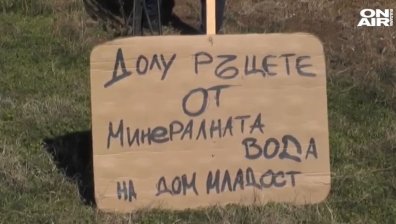 ON
AIR
ДОЛУ РЪЦЕТЕ
ОТ
МИНЕРАЛНАТА
ВОДА
НА ДОМ МЛАДОСТ